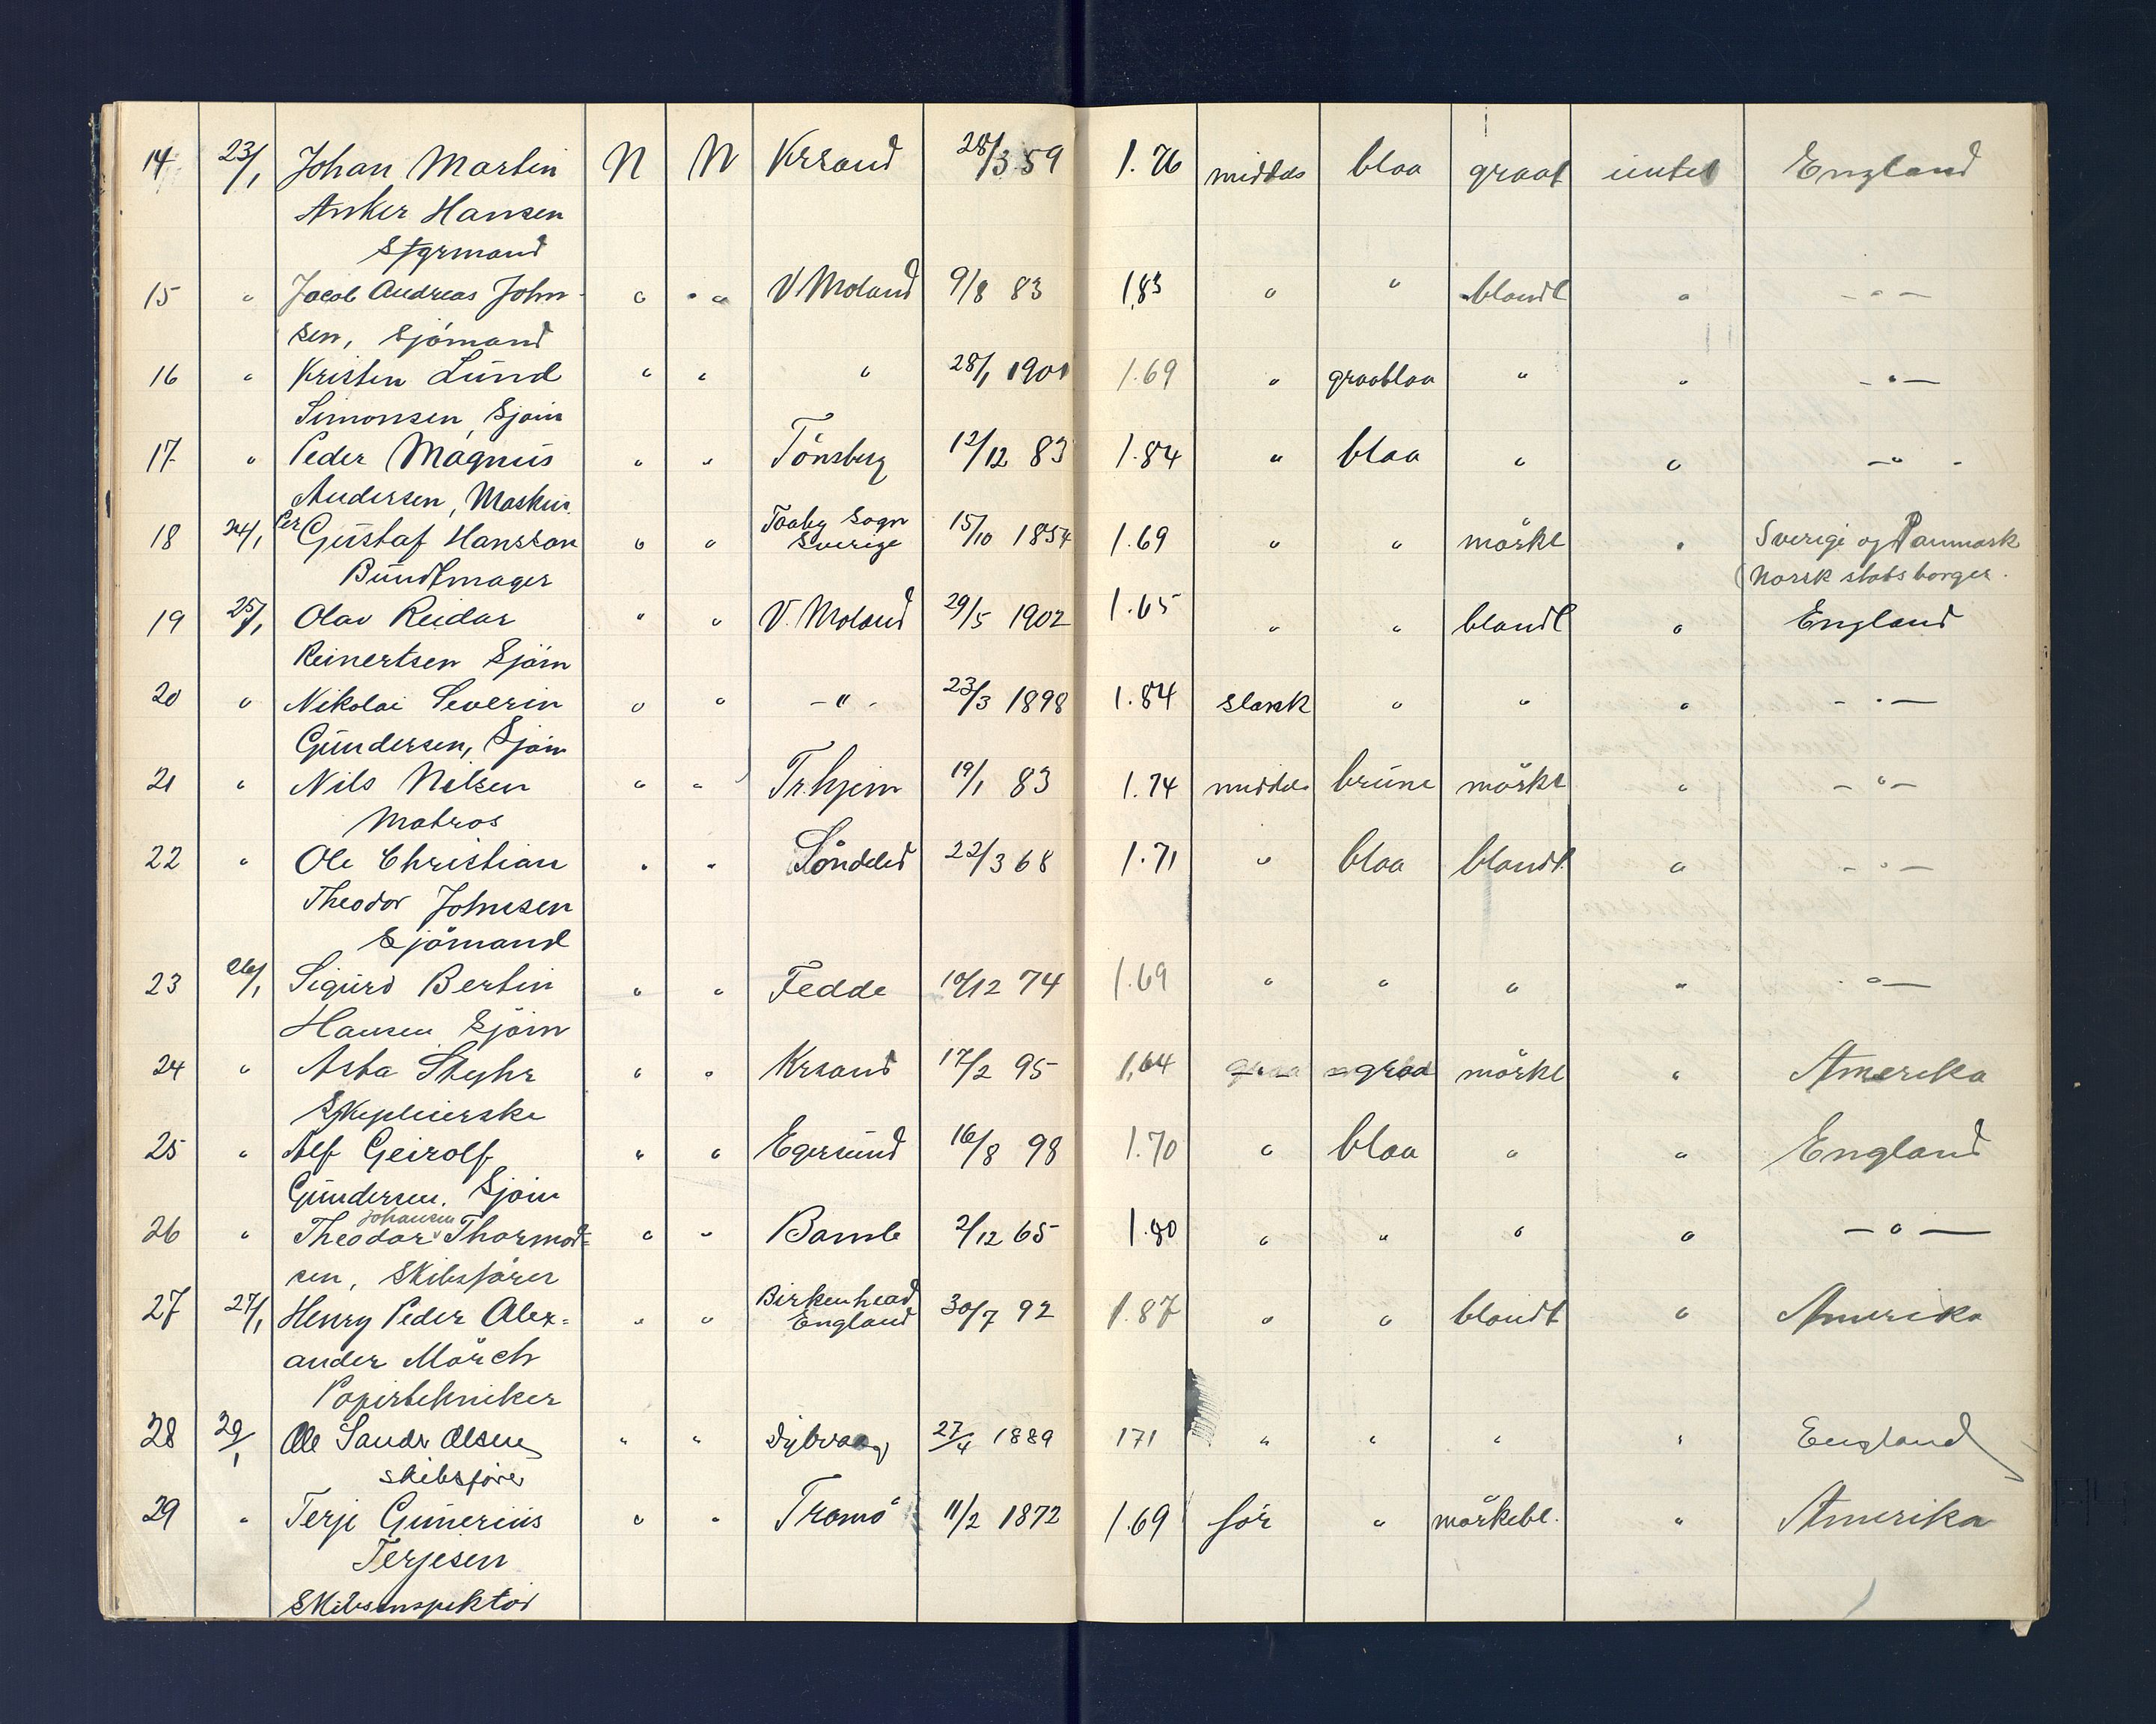 14 23/1 Johan Martin N N Krsand 28/3 59 1.76 middels blaa graat intet England
Anker Hansen
Styrmand
15 " Jacob Andreas John- " " V Moland 9/8 83 1,83 " " blandt " - " -
sen, Sjömand
16 " Kristen Lund " " " 28/1 1901 1.69 " graablaa " " - " -
Simonsen, Sjöm
17 " Peder Magnus " " Tönsberg 12/12 83 1.84 " blaa " " - " -
Andersen, Maskin.
18 24/1 Per Gustaf Hansson " " Taaby Sogn Sverige 15/10 1854 1.69 " " mörkt " Sverige og Danmark
Bundtmager (Norsk statsborger.
19 25/1 Olav Reidar " " V. Moland 29/5 1902 1.65 " " blandt " England
Reinertsen Sjöm
20 " Nikolai Severin " " - " - 23/3 1898 1.84 slank " " " - " -
Gundersen, Sjöm
21 " Nils Nilsen " " Tr.hjem 19/1 83 1.74 middels brune mörkt " - " -
Matros
22 " Ole Christian " " Söndeled 22/3 68 1.71 " blaa blandt " - " -
Theodor Johnsen
Sjömand
23 26/1 Sigurd Bertin " " Fedde 10/12 74 1.69 " " " " - " -
Hansen Sjöm
24 " Asta Styhr " " Krsand 17/2 95 1,64 - " - graa mörkt " Amerika
Sykepleierske
25 " Alf Geirolf " " Egersund 16/8 98 1.70 " blaa " " England
Gundersen. Sjöm
Johansen
26 " Theodor Thormod= " " Bamle 2/12 65 1.80 " " " " - " -
sen, Skibsförer
27 27/1 Henry Peder Alex= " " Birkenhead England 30/7 92 1.87 " " blandt " Amerika
ander Mörch
Papirtekniker
28 29/1 Ole Sandr Olsen " " Dybvaag 27/4 1889 171 " " " " England
skibsförer
29 " Terje Gunerius " " Tromö 11/2 1872 1.69 för " mörkebl. " Amerika
Terjesen
Skibsinspektör